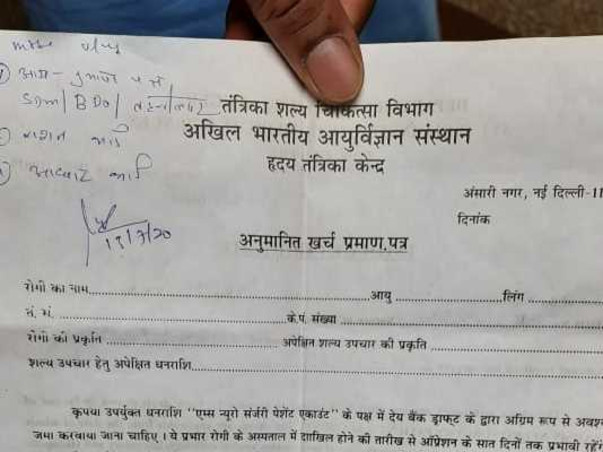 आय - प्रमाण पत्र
SDM / BDO / तहसीलदार
राशन कार्ड
आधार कार्ड
13/7/20
तंत्रिका शल्य चिकित्सा विभाग
अखिल भारतीय आयुर्विज्ञान संस्थान
हृदय तंत्रिका केन्द्र
अंसारी नगर, नई दिल्ली-11
दिनांक
अनुमानित खर्च प्रमाण पत्र
रोगी का नाम..............आयु..............लिंग..............
तं. सं...............के.पं. संख्या..............
रोगी की प्रकृति..............अपेक्षित शल्य उपचार की प्रकृति..............
शल्य उपचार हेतु अपेक्षित धनराशि..............
कृपया उपर्युक्त धनराशि "एम्स न्यूरो सर्जरी पेशेंट एकाउंट" के पक्ष में देय बैंक ड्राफ्ट के द्वारा अग्रिम रूप से अवश्
जमा करवाया जाना चाहिए। ये प्रभार रोगी के अस्पताल में दाखिल होने की तारीख से ऑप्रेशन के सात दिनों तक प्रभावी रहेंगे